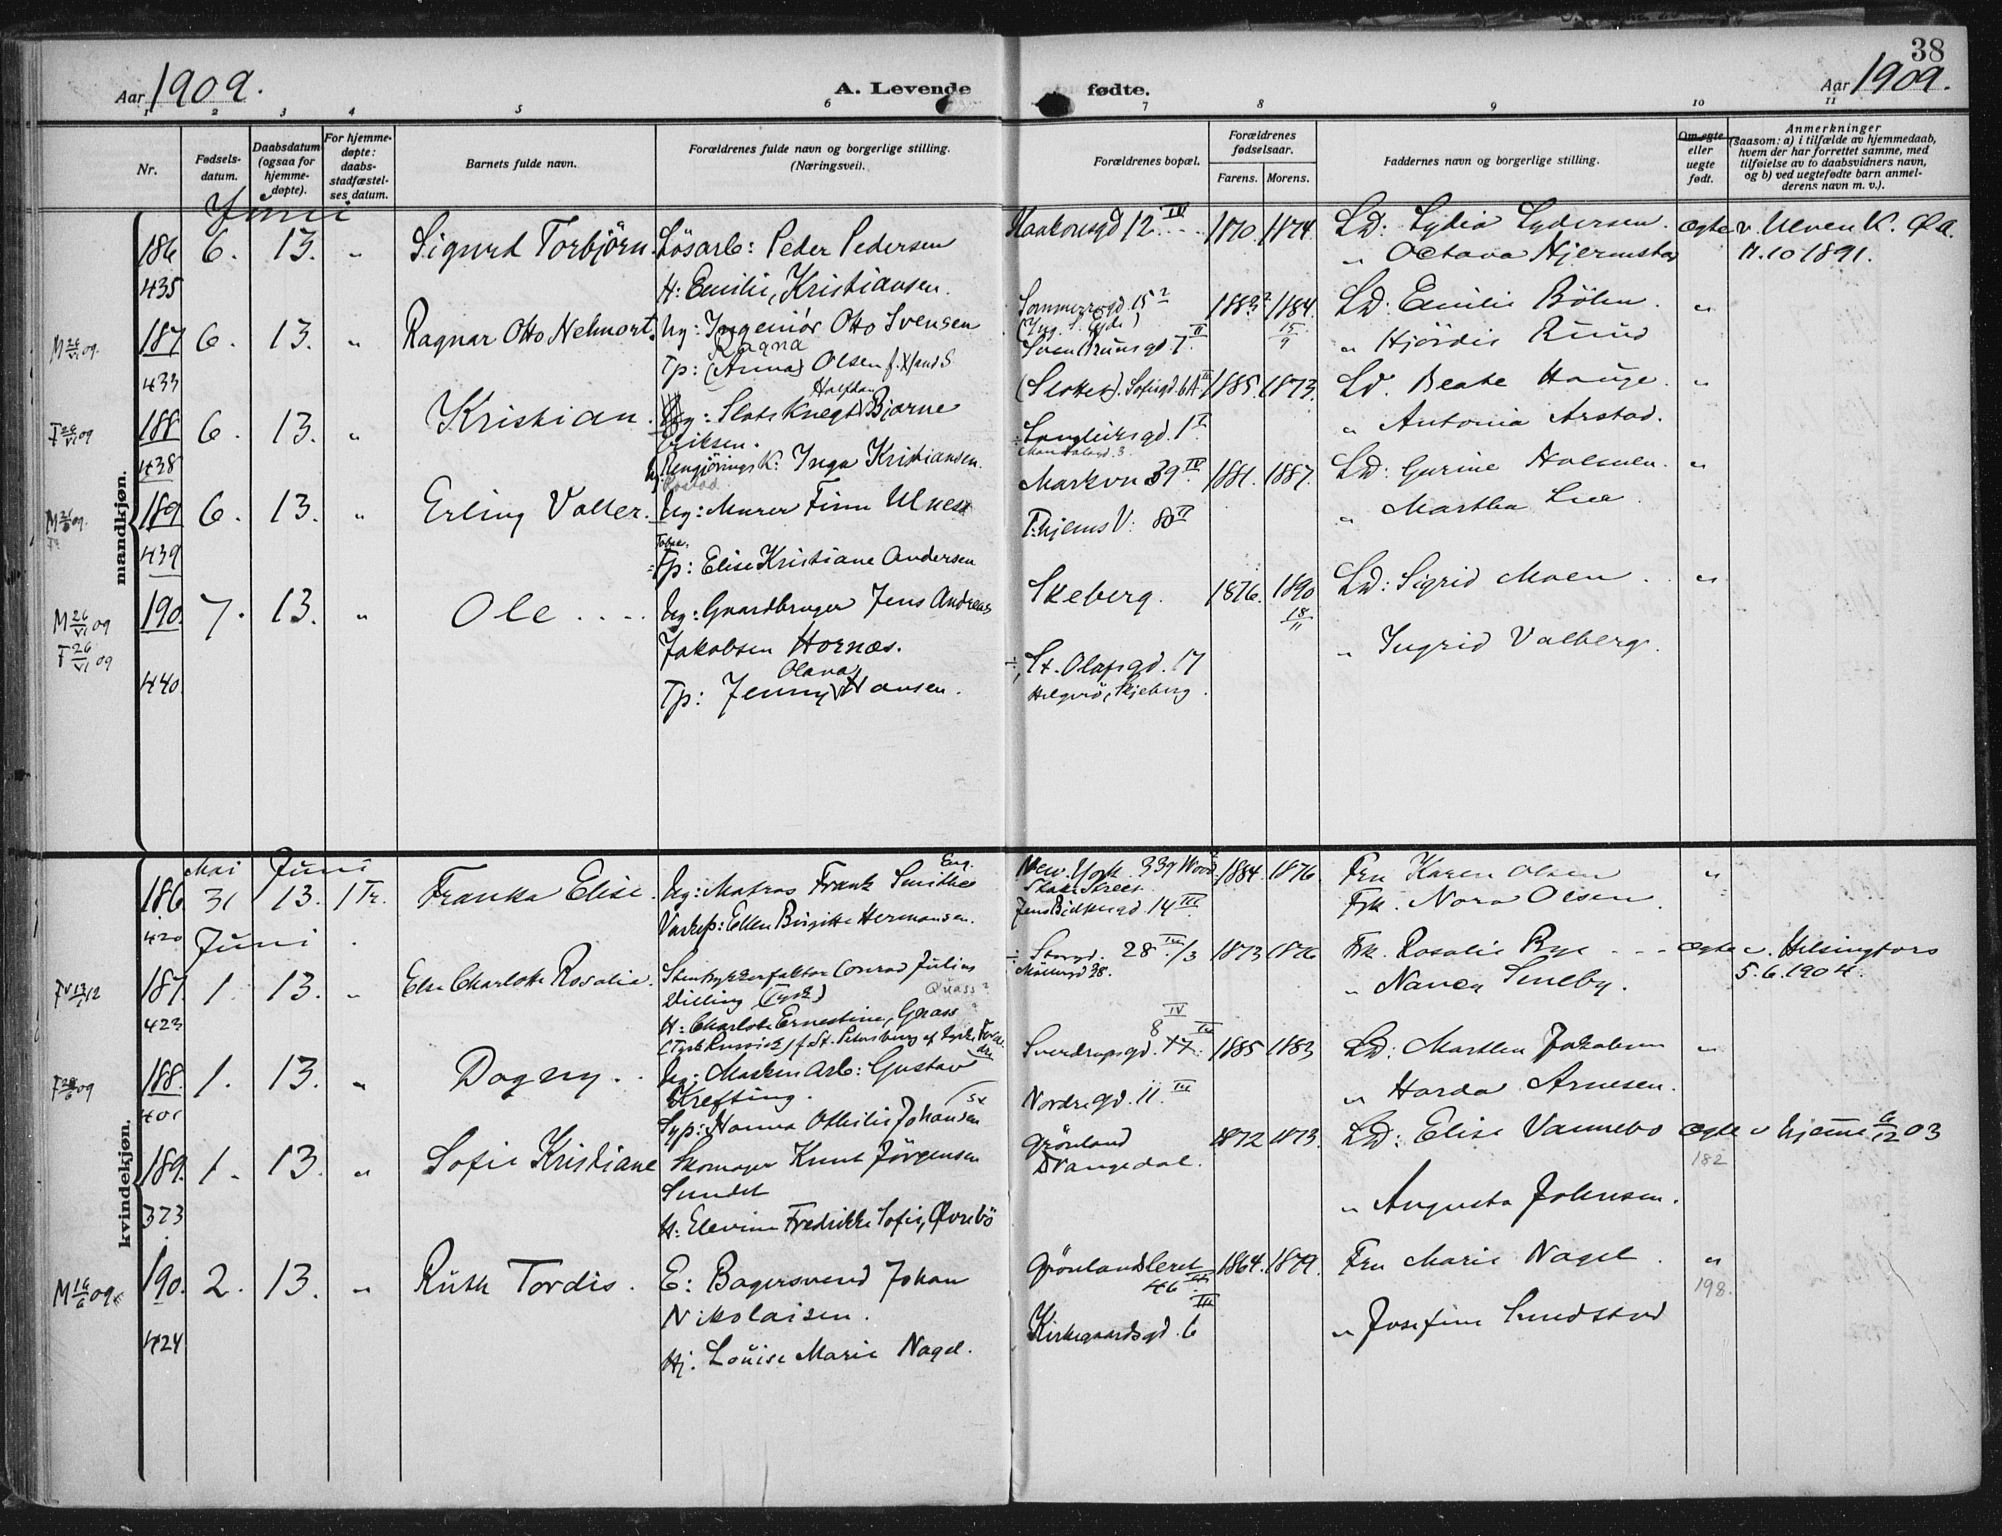 38
Aar 1909. A. Levende fødte. Aar 1909.
1 2 3 4 5 6 7 8 9 10 11
Nr.
Fødsels-
datum.
Daabsdatum
(ogsaa for
hjemme-
døpte).
For hjemme-
døpte:
daabs-
stadfæstel-
ses datum.
Barnets fulde navn.
Forældrenes fulde navn og borgerlige stilling.
(Næringsvei).
Forældrenes bopæl.
Forældrenes
fødselsaar.
Farens. Morens.
Faddernes navn og borgerlige stilling.
Om egte
eller
uegte
født.
Anmerkninger
(saasom: a) i tilfælde av hjemmedaab,
hvem der har forrettet samme, med
tilføielse av to daabsvidners navn,
og b) ved uegtefødte barn anmel-
derens navn m. v.).
mandkjøn.
Juni
186 6. 13. " Sigurd Torbjörn. Lösarb: Peder Pedersen Haakonsgd 12 IV 1870. 1874. Ld: Lydia Lydersen. ægte v. Ulven K.
435 " Octava Hjermstad 11.10 1891.
H: Emilie, Kristiansen.
187 6. 13. " Ragnar Otto Ug: Ingeniór Otto Svensen Sommerrogd. 15 1883? 1884. Ld: Emilie Böhn. "
433 Ragna 15/9 " Hjördis Ruud
Tp: (Anna) Olsen
188 6. 13. " Kristian. Ug: Slotsknegt Halfdan Bjarne (Slottet). Sofiegd 6A 1885. 1873. Ld. Beate Hauge. "
438 Eriksen. Langleiksgd. 1 " Antonia Arstad.
Rengjöringsk: Inga Kristiansen.
189 6. 13. " Erling Valter. Ug: Murer Finn Ulnes Markvn 39 IV 1881. 1887. Ld: Gurine Holmen. "
439 Tp: Elise Kristiane Andersen T.hjems V. 80 II " Martha Lie.
M 26/VI 09
F 26/VI 09
190. 7. 13. " Ole .... Ug: Gaardbruger Jens Andreas Skeberg. 1876. 1890 Ld: Sigrid Moen. "
440. Jakobsen Hornæs. 18/11 " Ingrid Valberg.
Olava
Tp: Jenny Hansen. St. Olafsgd. 17
Skjeberg.
kvindekjøn.
Mai Juni
186. 31 13. 1 Tr. Franka Elise. Ug: Matros Frank Smithe Eng. New. York. 339 Wood 1884. 1876. Fru Karen Olsen "
420 Vaskep: Ellen Birgitte Hermansen. Jens Bjelkesgd. 14 III Frk. Nora Olsen.
Juni
187. 1. 13. " Else Charlotte Rosalia. Stentrykkerfaktor Conrad Julius Storgd. 28 1873 1876 Frk. Rosalie Rye ægte v. Helsingfors
423 Villing (Tysk) Quass? Möllergd 38. " Nancy Smeby. 5.6.1904.
H: Charlotte Ernestine, Grass
188. 1. 13. " Dagny. Ug: Maskinarb: Gustav Sverdrupsgd. 1885 1883 Ld: Marthen Jakobsen "
401 Krefting. Nordregd. 11. III " Harda Arnesen.
Syp: Hanna Othilie Johansen
189. 1. 13. " Sofie Kristiane Skomager Knut Jörgensen Grönland 1872 1873. Ld: Elise Vannebo ægte v hjemme 6/12 03
373 Sundet Drangedal. " Augusta Johnsen. 182
H. Elevine Fredrikke Sofie, Øvrebö
190. 2. 13. " Ruth Tordis. E: Bagersvend Johan Grönlandsleret 46 1864. 1879. Fru Marie Nagel. "
424 Nikolaisen. Kirkegaardsgd. 6 III " Josefine Sundstad 198.
Hj. Louise Marie Nagel.